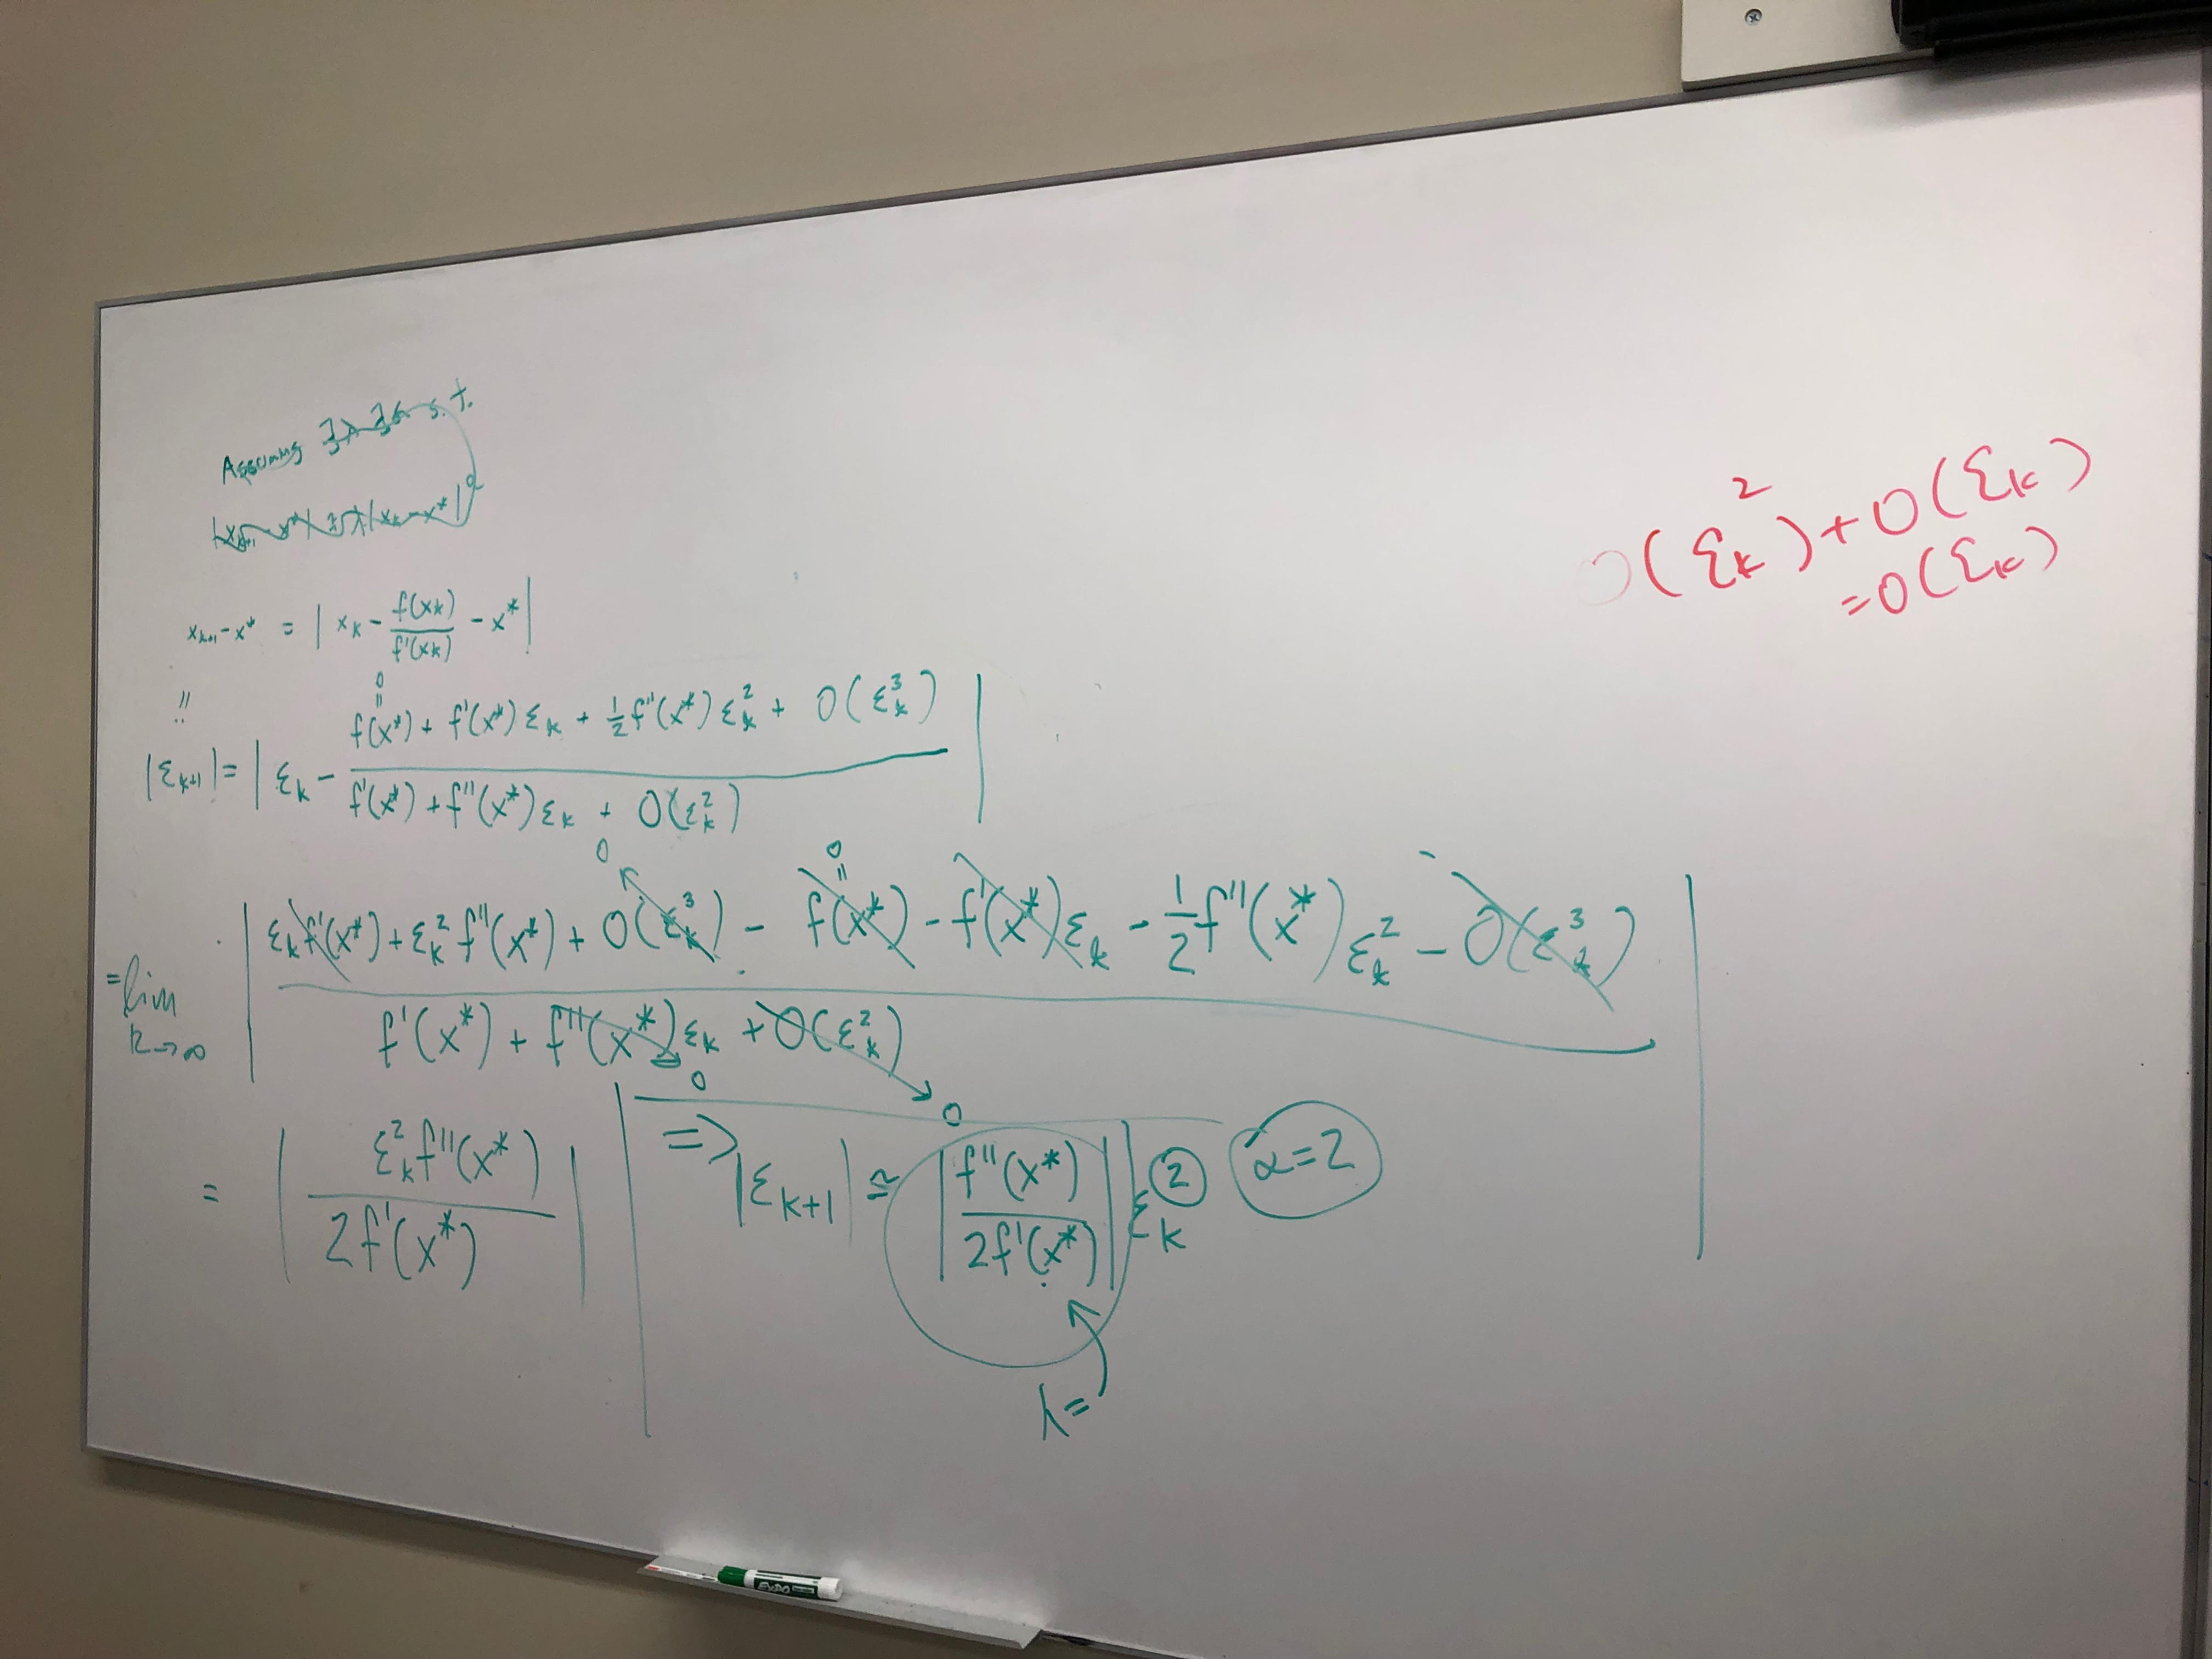 Assuming ∃λ ∃α s.t.
|x_{k+1} - x*| ≅ λ|x_k - x*|^α
x_{k+1} - x* = | x_k - f(x_k)/f'(x_k) - x* |
0
"
||
|ε_{k+1}| = | ε_k - (f(x*) + f'(x*) ε_k + 1/2 f''(x*) ε_k^2 + O(ε_k^3)) / (f'(x*) + f''(x*) ε_k + O(ε_k^2)) |
0 0
||
= lim k→∞ | (ε_k f'(x*) + ε_k^2 f''(x*) + O(ε_k^3) - f(x*) - f'(x*) ε_k - 1/2 f''(x*) ε_k^2 - O(ε_k^3)) / (f'(x*) + f''(x*) ε_k + O(ε_k^2)) |
0 0
= | ε_k^2 f''(x*) / 2f'(x*) | ⇒ |ε_{k+1}| ≅ | f''(x*) / 2f'(x*) | ε_k^2 α=2
λ=
O(ε_k^2) + O(ε_k)
= O(ε_k)
EXPO